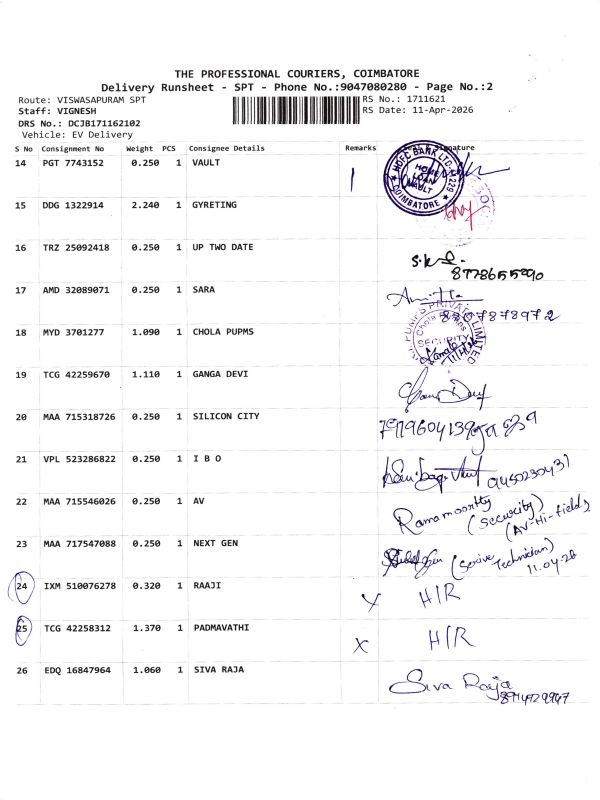 THE PROFESSIONAL COURIERS, COIMBATORE
Delivery Runsheet - SPT - Phone No.:9047080280 - Page No.:2
Route: VISWASAPURAM SPT
Staff: VIGNESH
DRS No.: DCJB171162102
Vehicle: EV Delivery
RS No.: 1711621
RS Date: 11-Apr-2026
S No Consignment No Weight PCS Consignee Details Remarks Signature
14 PGT 7743152 0.250 1 VAULT
HDFC BANK LTD COIMBATORE HOME LOAN VAULT
15 DDG 1322914 2.240 1 GYRETING
16 TRZ 25092418 0.250 1 UP TWO DATE
8778655890
17 AMD 32089071 0.250 1 SARA
18 MYD 3701277 1.090 1 CHOLA PUPMS
PUMPS PRIVATE LIMITED SECURITY
19 TCG 42259670 1.110 1 GANGA DEVI
20 MAA 715318726 0.250 1 SILICON CITY
21 VPL 523286822 0.250 1 I B O
9450230431
22 MAA 715546026 0.250 1 AV
Ramamoorthy (Security) (AV-Hi-fields
23 MAA 717547088 0.250 1 NEXT GEN
Technician)
11.04.26
24 IXM 510076278 0.320 1 RAAJI X H/R
25 TCG 42258312 1.370 1 PADMAVATHI X H/R
26 EDQ 16847964 1.060 1 SIVA RAJA Siva Raja